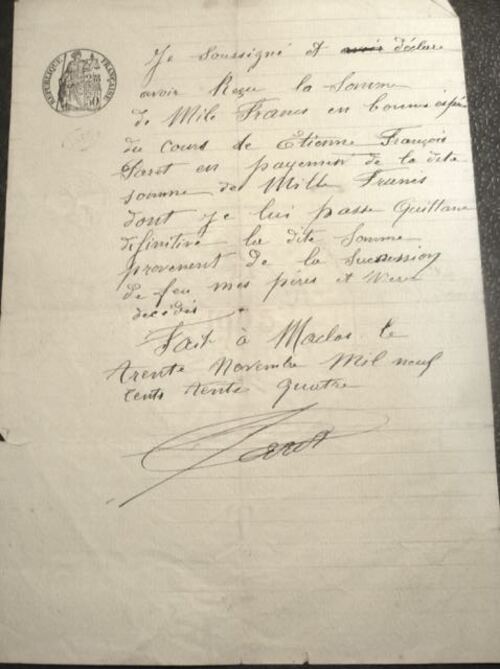 RÉPUBLIQUE FRANÇAISE
50
Je soussigné et avoir déclare
avoir Reçu la Somme
de Mile Francs en bonnes espèc
du cours de Étienne François
Faret en payement de la dite
somme de Mille Francs
dont je lui passe Quittance
définitive la dite Somme
provenent de la Succession
de feu mes pères et Mere
décédés
Fait à Maclas le
trente Novembre Mil neuf
cents tente quatre